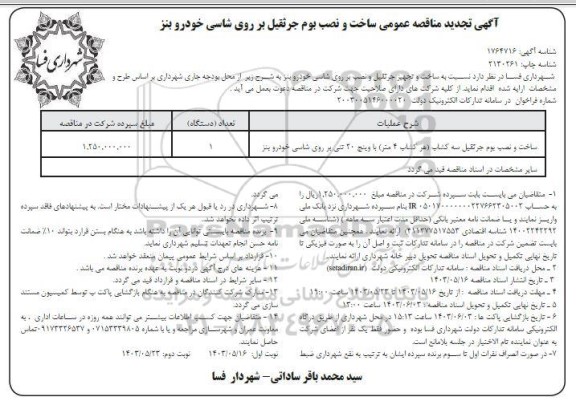 آگهی تجدید مناقصه عمومی ساخت و نصب بوم جرثقیل بر روی شاسی خودرو بنز
شهرداری فسا
شناسه آگهی: ۱۷۶۴۷۱۶
شناسه چاپ: ۲۱۳۰۲۶۱
شهرداری فسا در نظر دارد نسبت به ساخت و تجهیز جرثقیل و نصب بر روی شاسی خودرو بنز به شرح زیر از محل بودجه جاری شهرداری بر اساس طرح و
مشخصات ارایه شده اقدام نماید. از کلیه شرکت های دارای صلاحیت جهت شرکت در مناقصه دعوت بعمل می آید.
شماره فراخوان در سامانه تدارکات الکترونیک دولت ۲۰۰۳۰۰۵۱۴۶۰۰۰۰۲۰
شرح عملیات
تعداد (دستگاه)
مبلغ سپرده شرکت در مناقصه
ساخت و نصب بوم جرثقیل سه کشاب (هر کشاب ۴ متر) با وینچ ۲۰ تنی بر روی شاسی خودرو بنز
۱
۱,۲۵۰,۰۰۰,۰۰۰
سایر مشخصات در اسناد مناقصه قید می گردد
۱- متقاضیان می بایست بابت سپرده شرکت در مناقصه مبلغ ۱,۲۵۰,۰۰۰,۰۰۰ ریال را
به حساب بنام سپرده شهرداری نزد بانک ملی
واریز نمایند و یا ضمانت نامه معتبر بانکی (حداقل مدت اعتبار سه ماهه) (شناسه ملی
ارائه نمایند. همچنین متقاضیان می
بایست تضمین شرکت در مناقصه را در سامانه تدارکات ثبت و اصل آن را به صورت فیزیکی تا
تاریخ نهایی تکمیل و تحویل اسناد مناقصه تحویل دبیر خانه شهرداری ارائه نمایند.
۲- محل دریافت اسناد مناقصه: سامانه تدارکات الکترونیکی دولت (setadiran.ir)
۳- تاریخ انتشار اسناد مناقصه ۱۴۰۳/۰۵/۱۶
۴- مهلت دریافت اسناد مناقصه: از تاریخ ۱۴۰۳/۰۵/۱۶ تا ۱۴۰۳/۰۵/۲۳ تا ساعت ۱۹:۰۰
۵- تاریخ نهایی تکمیل و تحویل اسناد مناقصه: ۱۴۰۳/۰۶/۰۳ ساعت ۱۳:۰۰
۶- تاریخ بازگشایی پاکت ها: ۱۴۰۳/۰۶/۰۳ ساعت ۱۵:۱۳ در محل شهرداری از طریق درگاه
الکترونیکی سامانه تدارکات دولت شهرداری فسا بوده و حضور فقط یک نفر از اعضای شرکت
به عنوان نماینده تام الاختیار در جلسه بلامانع است.
۷- در صورت انصراف نفرات اول تا سوم برنده سپرده ایشان به ترتیب به نفع شهرداری ضبط
می گردد.
۸- شهرداری در رد یا قبول هر یک از پیشنهادات مختار است. به پیشنهادهای فاقد سپرده
ترتیب اثر داده نخواهد شد.
۹- برنده مناقصه بایستی توانایی آن را داشته باشد به هنگام بستن قرارداد بتواند ۱۰٪ ضمانت
نامه حسن انجام تعهدات تسلیم شهرداری نماید.
۱۰- قرارداد بر اساس شرایط عمومی پیمان منعقد خواهد شد.
۱۱- هزینه های درج آگهی در دو نوبت به عهده برنده مناقصه می باشد.
۱۲- سایر شرایط در اسناد مناقصه و قرارداد قید می گردد.
۱۳- امتیاز شرکت کنندگان در مناقصه هنگام بازگشایی پاکت پ توسط کمیسیون مستند
سازی می گردد.
۱۴- متقاضیان جهت کسب اطلاعات بیشتر می توانند همه روزه در ساعات اداری به
معاونت عمران و شهرسازی مراجعه و یا با شماره ۰۷۱۵۳۳۳۹۸۰۵ و ۰۹۱۷۳۳۲۶۵۳۷ تماس
حاصل نمایند.
نوبت اول: ۱۴۰۳/۰۵/۱۶
نوبت دوم: ۱۴۰۳/۰۵/۲۳
سید محمد باقر ساداتی- شهردار فسا